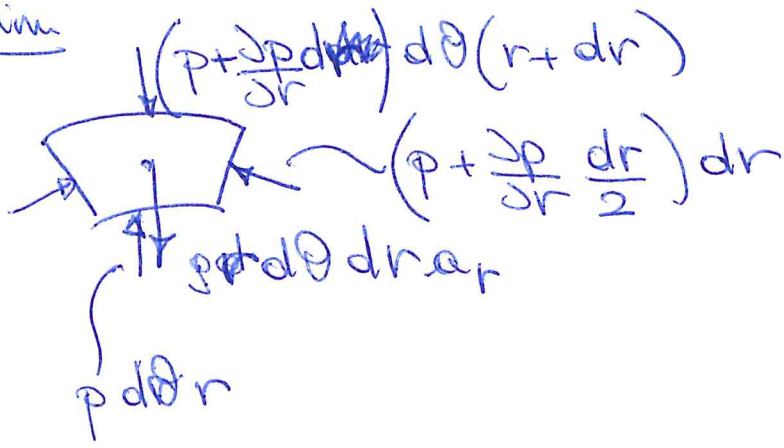 (p + ∂p/∂r dr) dθ (r + dr)
(p + ∂p/∂r dr/2) dr
ρr dθ dr aᵣ
p dθ r